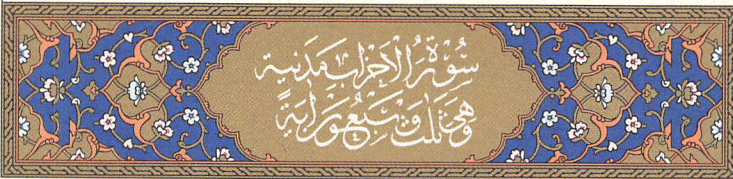 سُوْرَةُ الْاَحْزَابِ مَدَنِيَةٌ
وَهِيَ ثَلٰثٌ وَسَبْعُوْنَ اٰيَةً